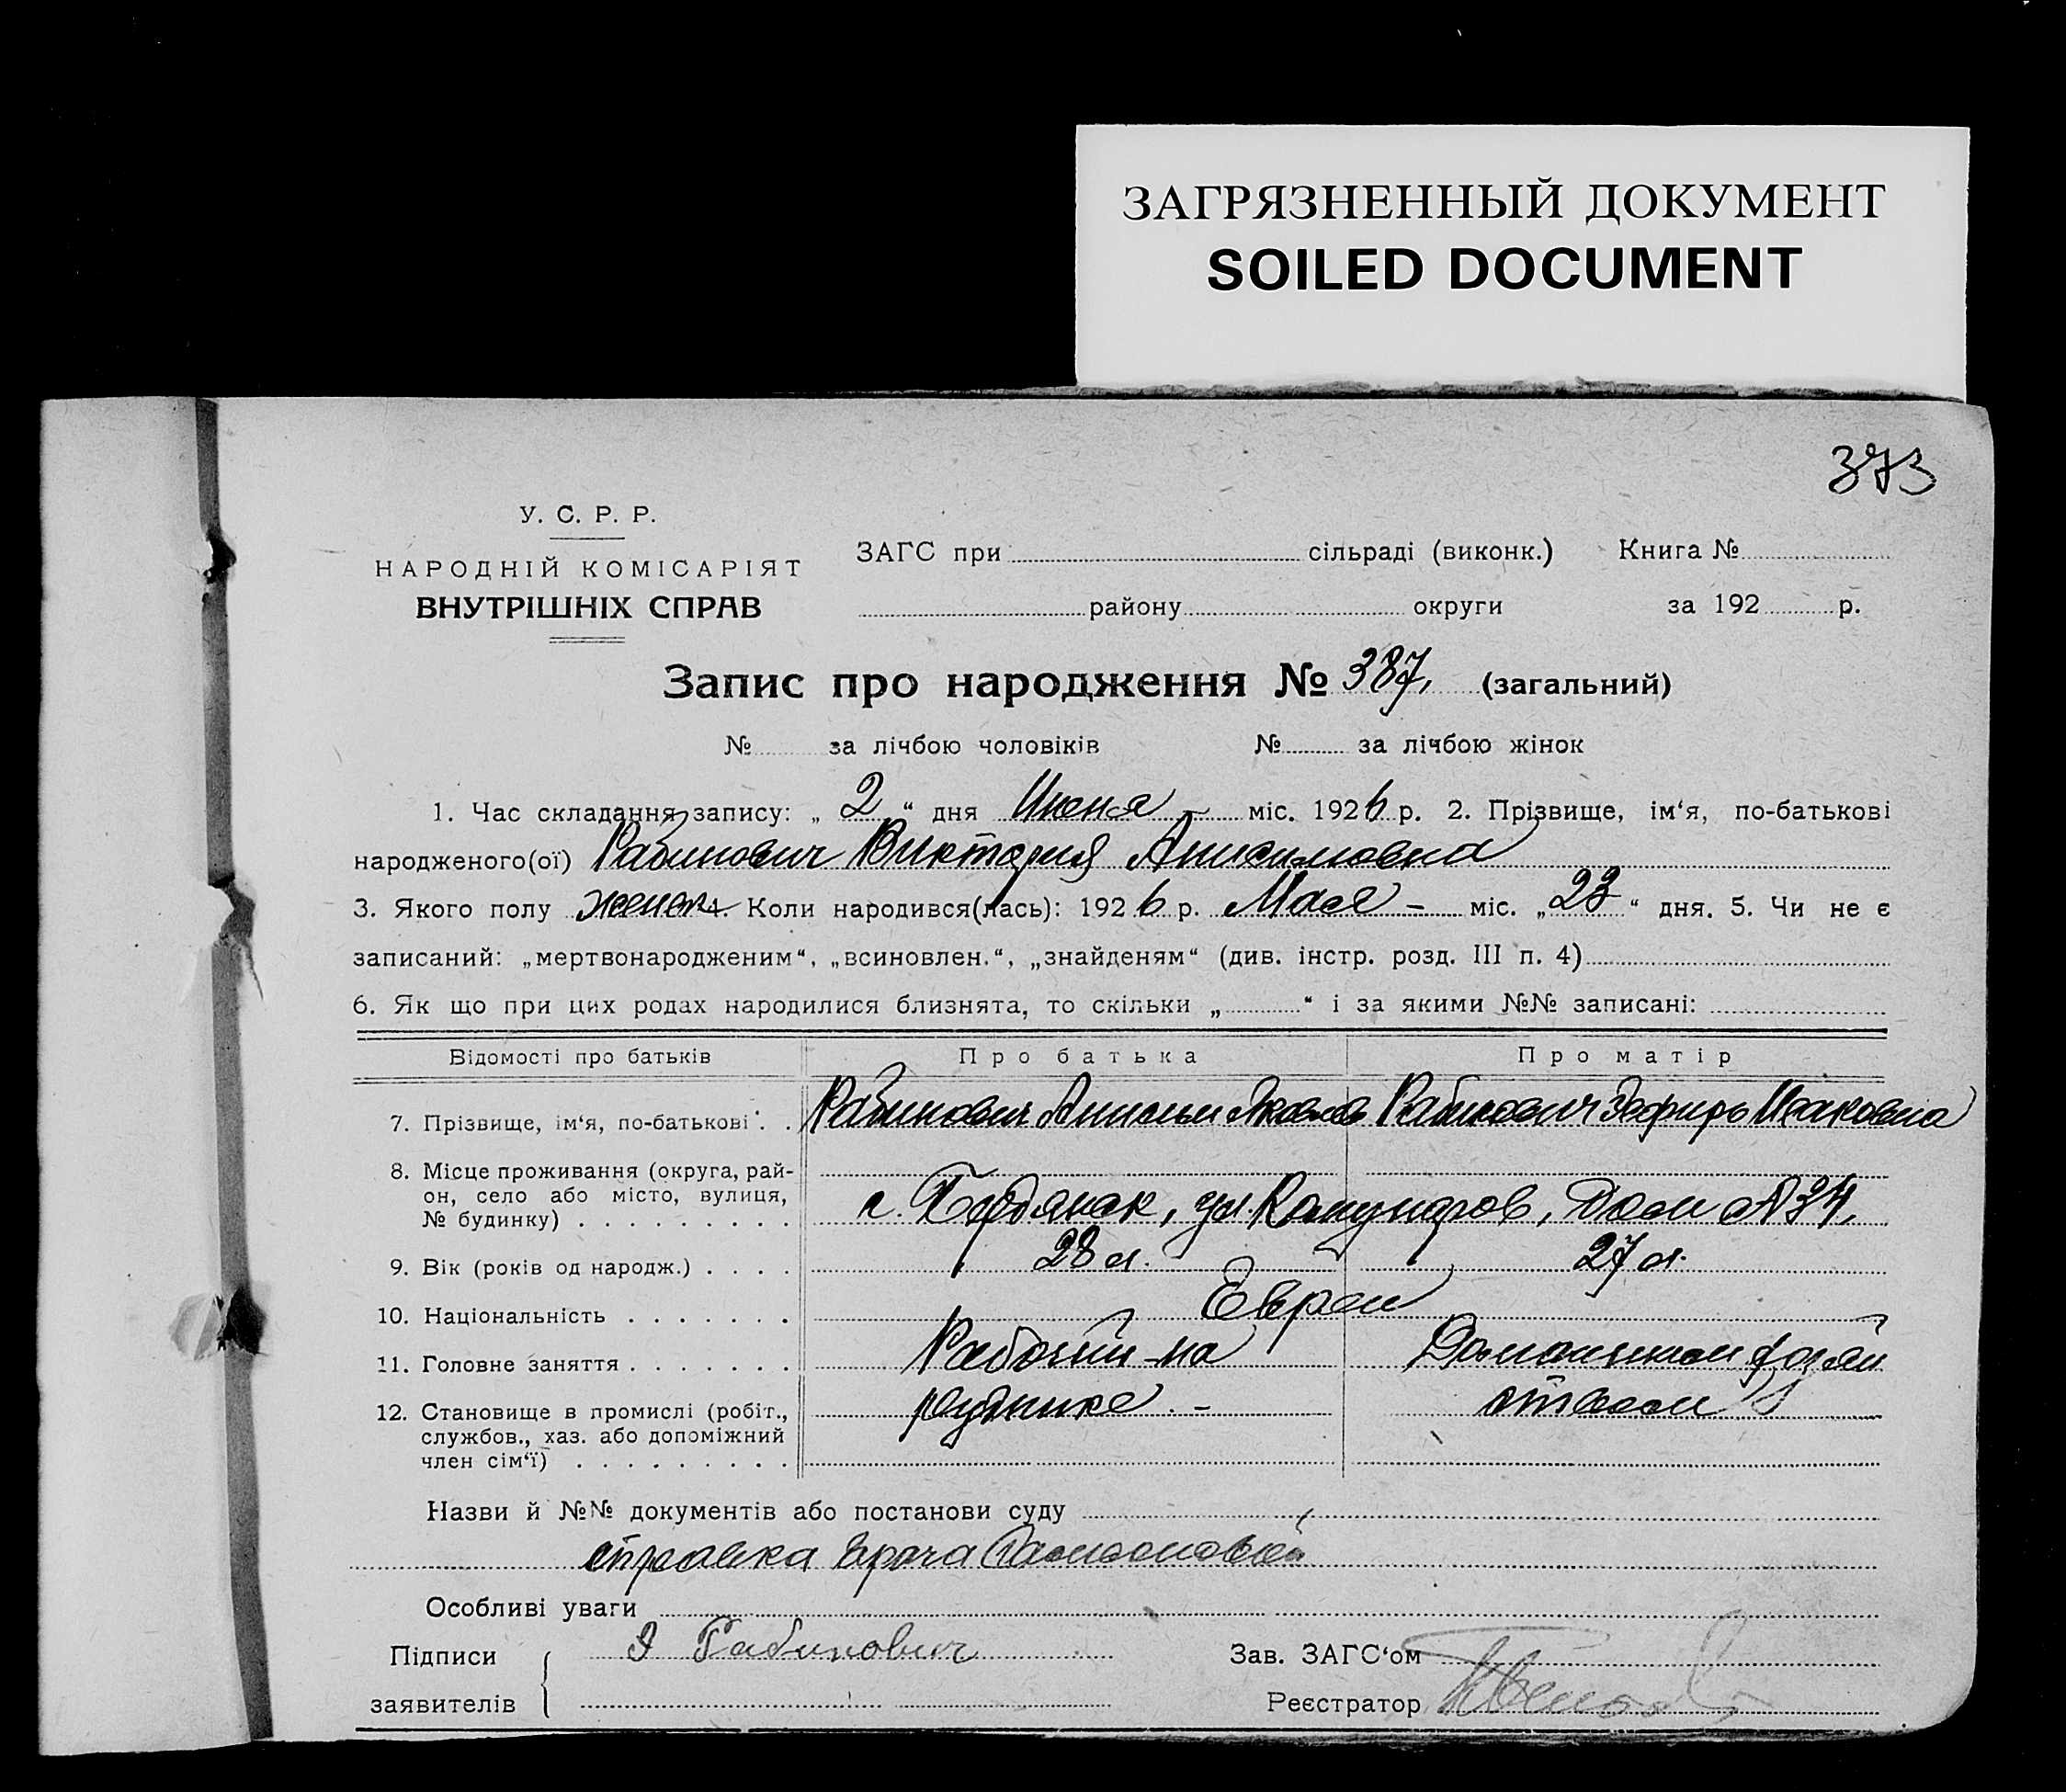 ЗАГРЯЗНЕННЫЙ ДОКУМЕНТ
SOILED DOCUMENT
373
У. С. Р. Р.
НАРОДНІЙ КОМІСАРІЯТ
ВНУТРІШНІХ СПРАВ
ЗАГС при сільраді (виконк.) Книга №
району округи за 192 р.
Запис про народження № 387, (загальний)
№ за лічбою чоловіків № за лічбою жінок
1. Час складання запису: „ 2 “ дня Июня – міс. 1926 р. 2. Прізвище, ім‘я, по-батькові
народженого(ої) Рабинович Виктория Анисимовна
3. Якого полу женск 4. Коли народився(лась): 1926 р. Мая – міс. „ 23 “ дня. 5. Чи не є
записаний: „мертвонародженим“, „всиновлен.“, „знайденям“ (див. інстр. розд. III п. 4)
6. Як що при цих родах народилися близнята, то скільки „ “ і за якими №№ записані:
Відомості про батьків Про батька Про матір
7. Прізвище, ім‘я, по-батькові . . Рабинович Анисим Яковлев Рабинович Эсфирь Исаковна
8. Місце проживання (округа, рай-
он, село або місто, вулиця,
№ будинку) . . . . . . . . . г. Бердянск, ул. Коммунаров, Дом № 34,
9. Вік (років од народж.) . . . . 28 л. 27 л.
10. Національність . . . . . . . Евреи
11. Головне заняття . . . . . . . Рабочий на Домашним хозяй
12. Становище в промислі (робіт., руднике. – ством
службов., хаз. або допоміжний
член сім‘ї) . . . . . . . . .
Назви й №№ документів або постанови суду
справка врача
Особливі уваги
Підписи Рабинович Зав. ЗАГС‘ом
заявителів Реєстратор